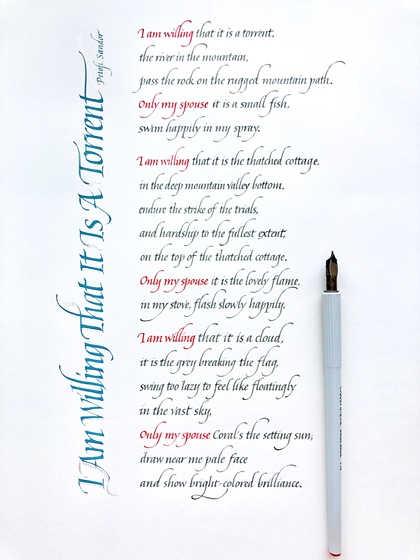 I Am Willing That It Is A Torrent
Petofi Sandor
I am willing that it is a torrent,
the river in the mountain,
pass the rock on the rugged mountain path.
Only my spouse it is a small fish,
swim happily in my spray.
I am willing that it is the thatched cottage,
in the deep mountain valley bottom,
endure the strike of the trials,
and hardship to the fullest extent,
on the top of the thatched cottage.
Only my spouse it is the lovely flame,
in my stove, flash slowly happily.
I am willing that it is a cloud,
it is the grey breaking the flag,
swing too lazy to feel like floatingly
in the vast sky,
Only my spouse Coral's the setting sun,
draw near me pale face
and show bright-colored brilliance.